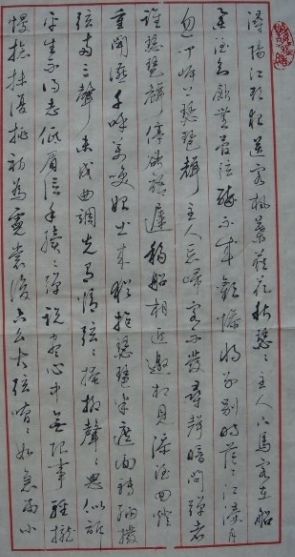 潯陽江頭夜送客楓葉荻花秋瑟〻主人下馬客在船
舉酒欲飲無管弦醉不成歡慘將別別時茫〻江浸月
忽聞水上琵琶聲主人忘歸客不發尋聲暗問彈者
誰琵琶聲停欲語遲移船相近邀相見添酒回燈
重開宴千呼萬喚始出來猶抱琵琶半遮面轉軸撥
弦兩三聲未成曲調先有情弦〻掩抑聲〻思似訴
平生不得志低眉信手續〻彈說盡心中無限事輕攏
慢撚抹復挑初為霓裳後六幺大弦嘈〻如急雨小